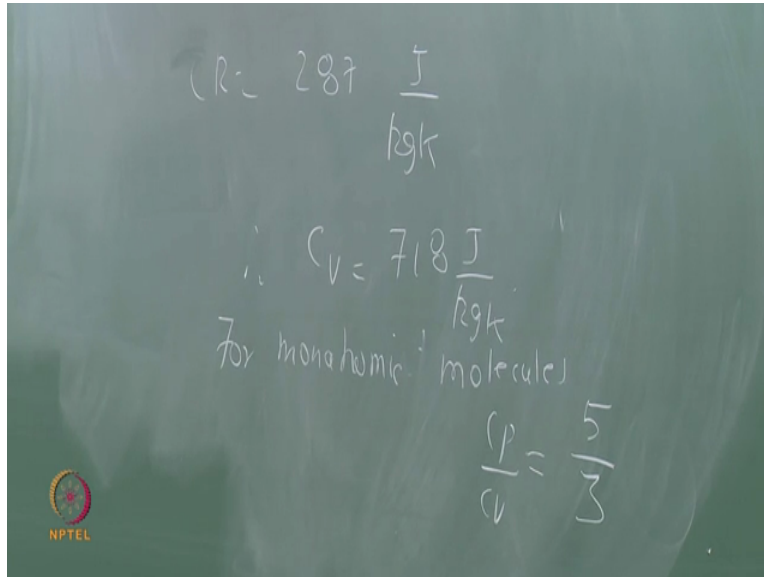 (R= 287 J/kgK
∴ Cv = 718 J/kgK
For monatomic molecules
Cp/Cv = 5/3
NPTEL